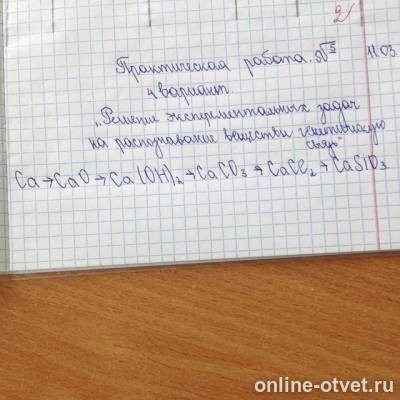 2
Практическая работа №5 11.03
4 вариант.
"Решении экспериментальных задач
на распознавание веществи генетическую
связь"
Ca→CaO→Ca(OH)2→CaCO3→CaCl2→CaSiO3
online-otvet.ru